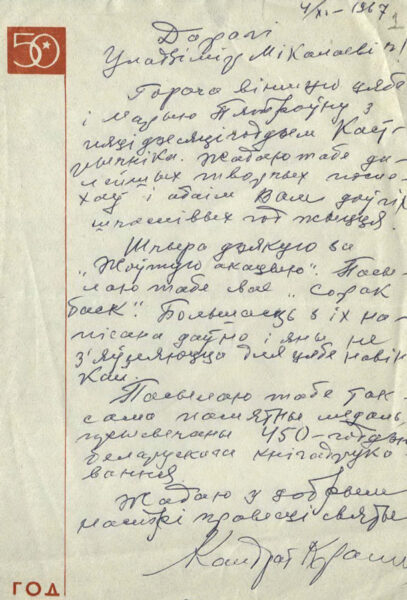 4/XI-1967
50
Дарагі
Уладзімір Мікалаевіч!
Горача віншую цябе
і Марыю Пятроўну з
пяцідзесяцігоддзем Каст-
рычніка. Жадаю табе да-
лейшых творчых поспе-
хаў і абаім Вам доўгіх
шчаслівых год жыцця.
Шчыра дзякую за
„Жоўтую акацыю". Пасы-
лаю табе свае „Сорак
баек". Большасць з іх на-
пісана даўно і яны не
з'яўляюцца для цябе навін-
кай.
Пасылаю табе так-
сама памятны медаль,
прысвечаны 450-годдзю
беларускага кнігадрука-
вання
Жадаю у добрым
настрі правесці святы
Кандрат Крапіва
ГОД